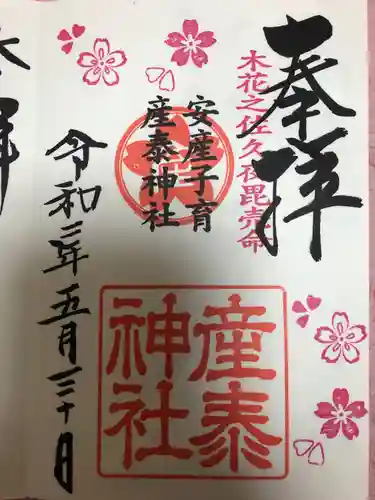 奉拝
木花之佐久夜毘売命
安産子育
産泰神社
産泰
神社
令和三年五月三十日